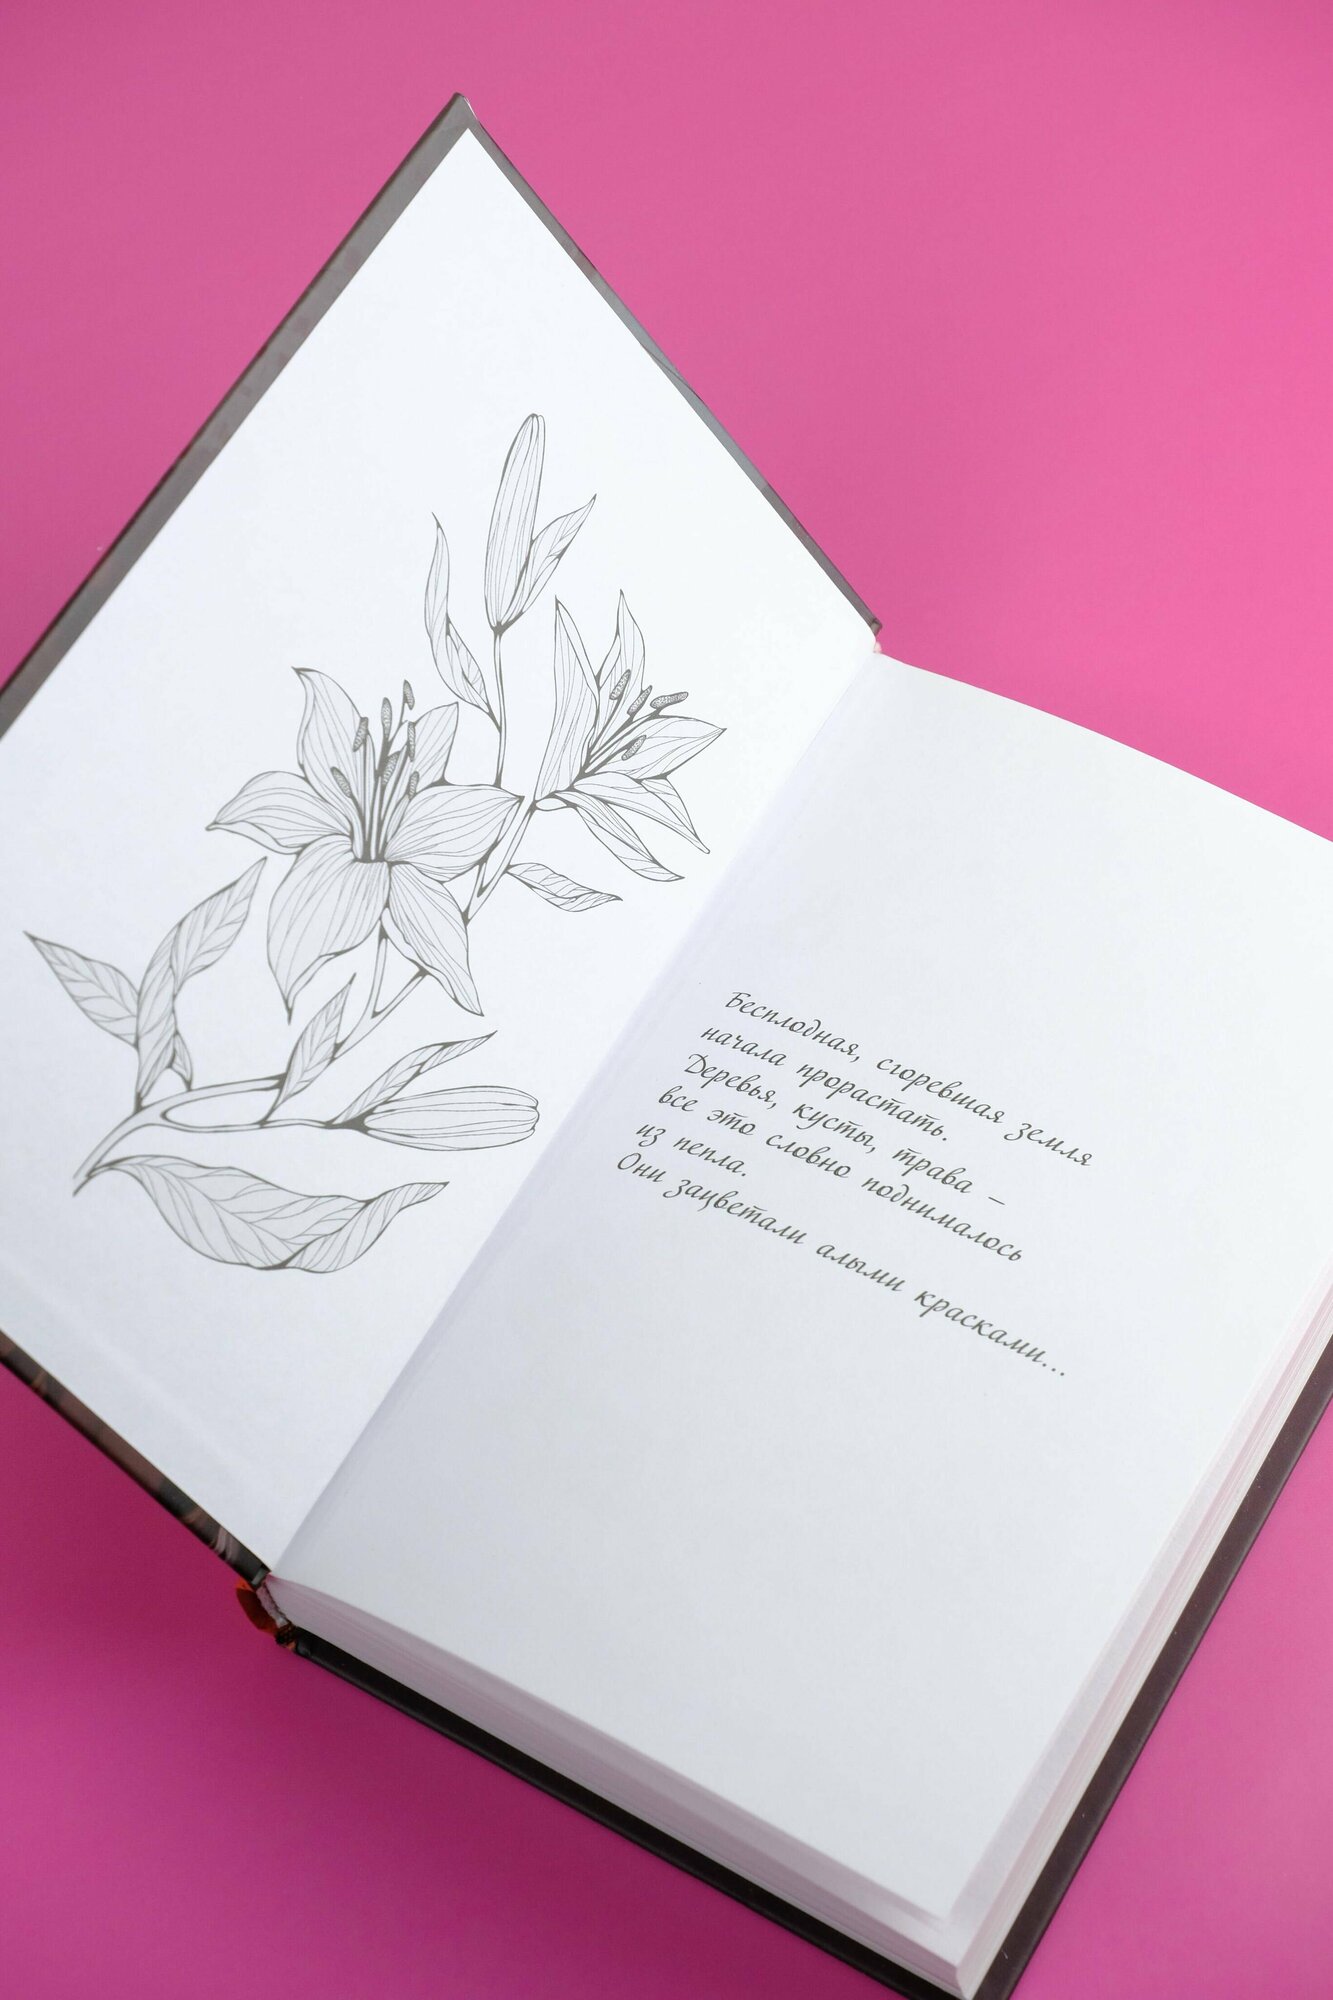 Бесплодная, сгоревшая земля
начала прорастать.
Деревья, кусты, трава –
все это словно поднималось
из пепла.
Они зацветали алыми красками...